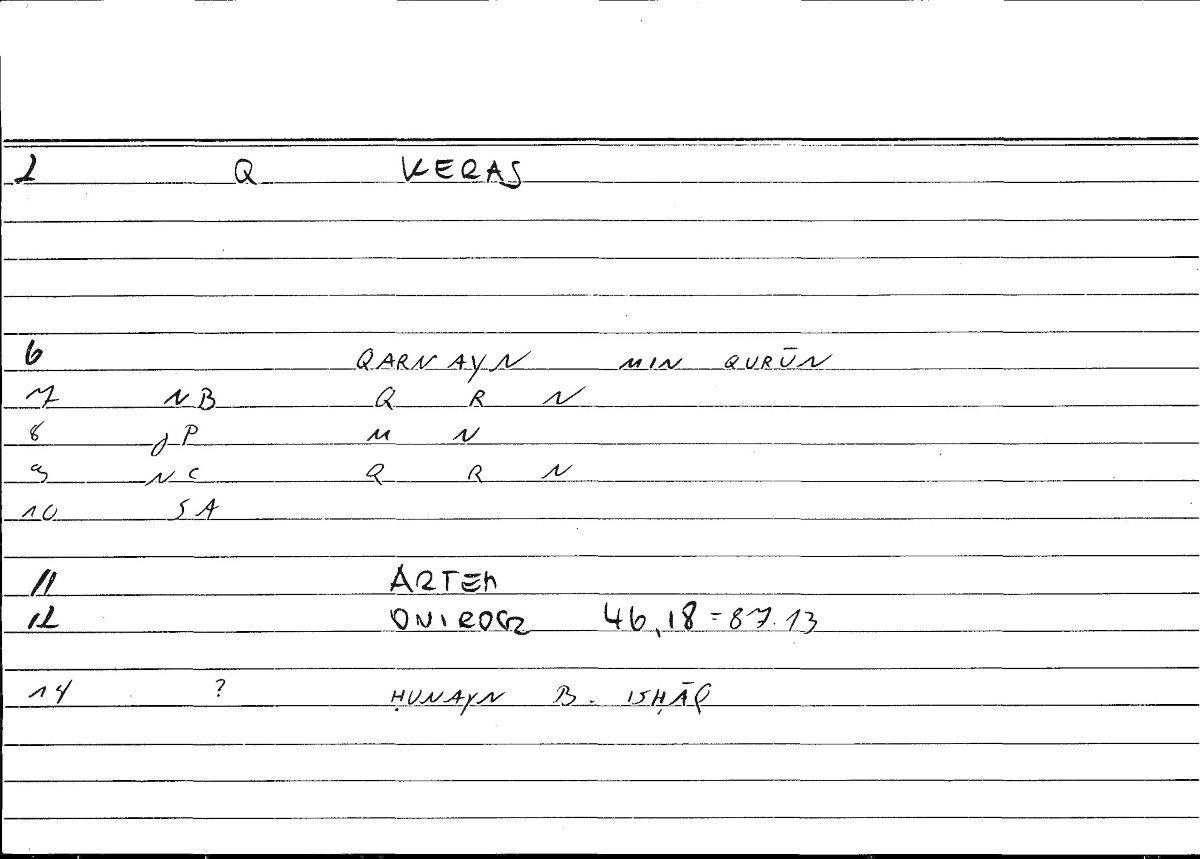 1 Q KERAS
6 QARNAYN MIN QURŪN
7 NB Q R N
8 JP M N
9 NC Q R N
10 SA
11 ARTEM
12 ONIROCR 46,18=87.13
14 ? ḤUNAYN B. ISḤĀQ